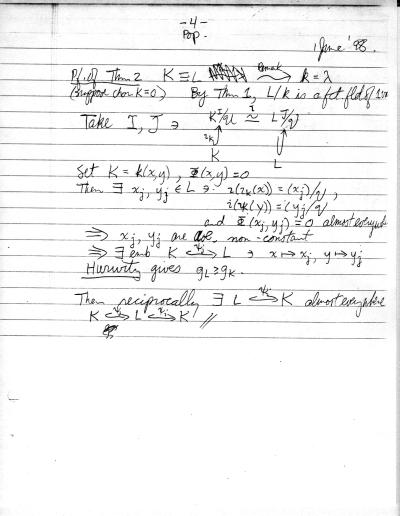 -4-
Pop.
June '98.
Pf. of Thm 2 K ≡ L ⟿ k = λ
(Suppose char K=0) By Thm 1, L/k is a fct fld of 1 var
Take I, J ∋ K^I/𝒰 ≅ L^J/𝒱
i
K L
Set K = k(x,y), Φ(x,y) = 0
Then ∃ x_j, y_j ∈ L ∋ i(ι_K(x)) = (x_j)/𝒱,
i(ι_K(y)) = (y_j)/𝒱
and Φ(x_j, y_j) = 0 almost everywhere
⇒ x_j, y_j are a.e. non-constant
⇒ ∃ emb K ↪ L ∋ x ↦ x_j, y ↦ y_j
Hurwitz gives g_L ≥ g_K.
Then reciprocally ∃ L ↪ K almost everywhere
K ↪ L ↪ K //